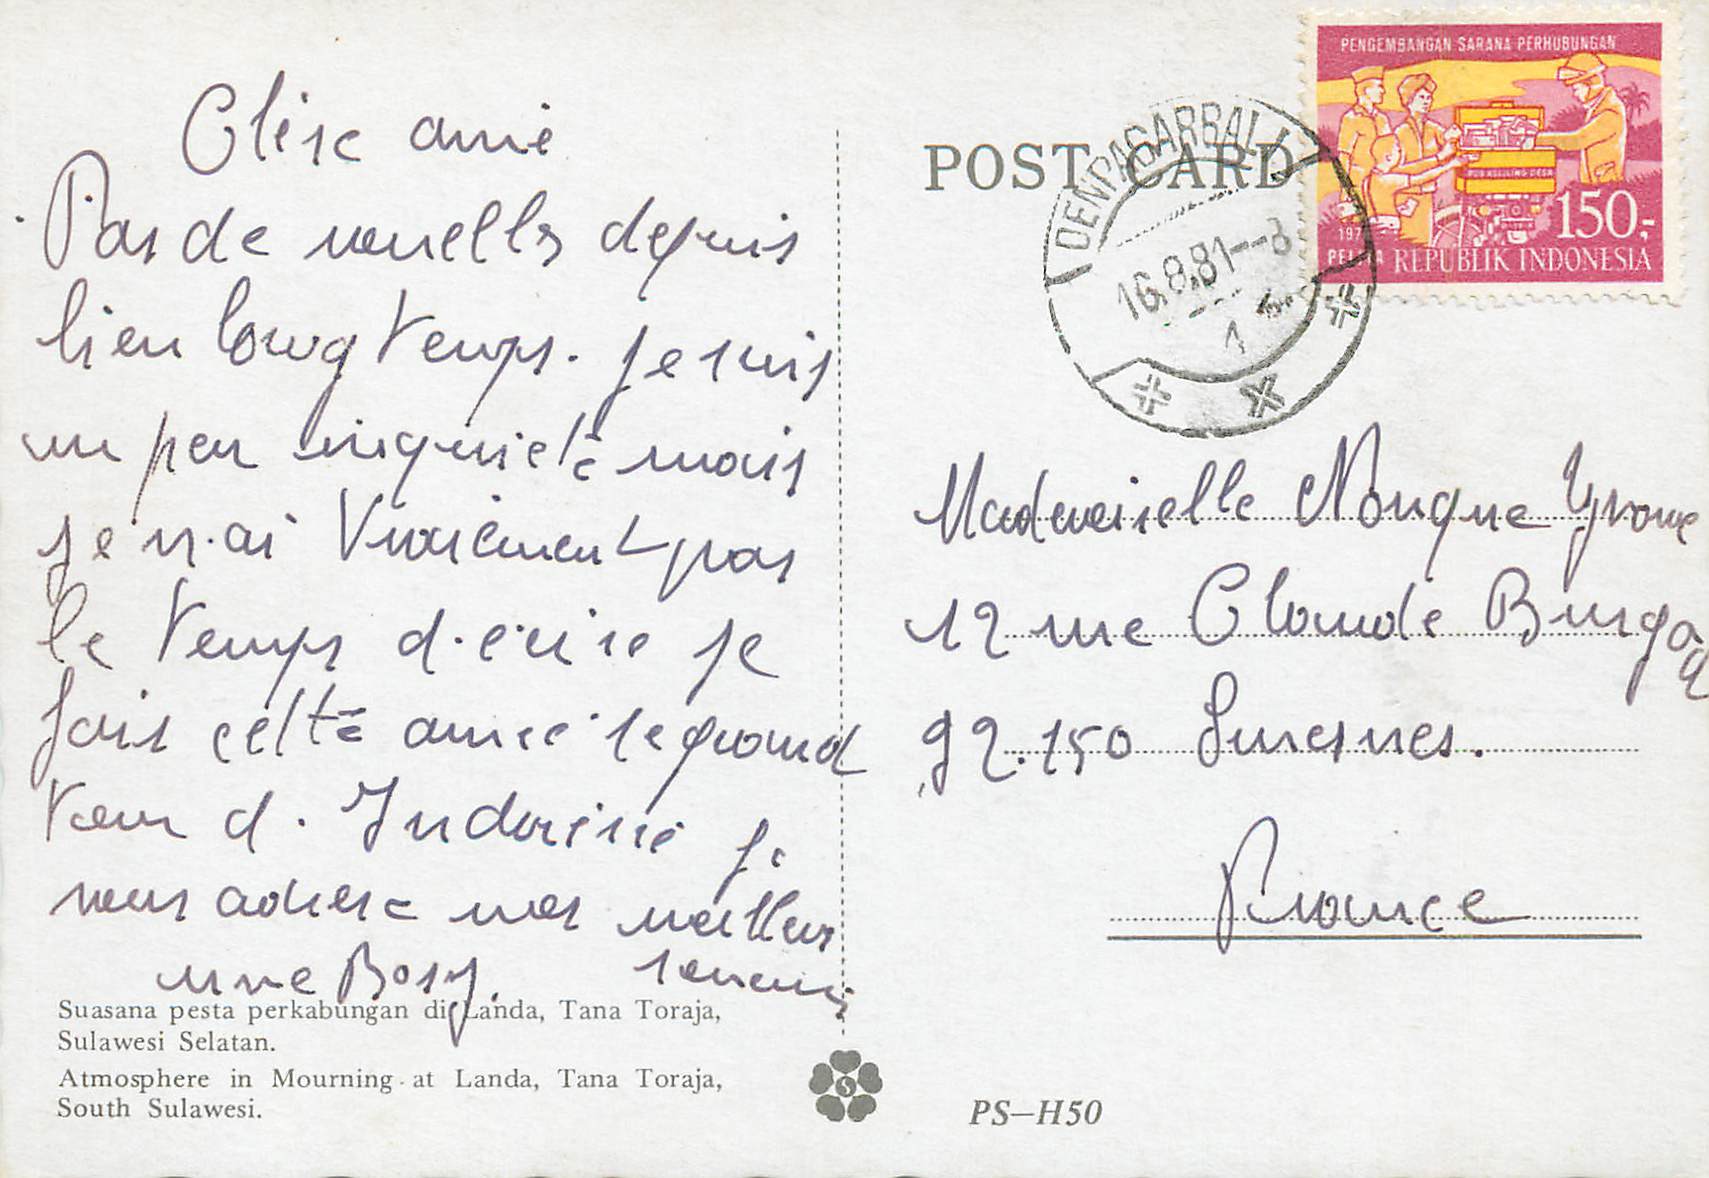 Chère amie
Pas de nouvelles depuis
bien longtemps. je suis
un peu inquiète mais
je n'ai vraiment pas
le temps d'écrire je
fais cette année le grand
tour d'Indonésie je
vous adresse mes meilleurs
souvenirs
Suasana pesta perkabungan di Landa, Tana Toraja,
Sulawesi Selatan.
Atmosphere in Mourning at Landa, Tana Toraja,
South Sulawesi.
POST CARD
DENPASARBALI
16.8.81--8
1
PENGEMBANGAN SARANA PERHUBUNGAN
POS KELILING DESA
150,-
REPUBLIK INDONESIA
Mademoiselle Yvonne
12 rue Claude
92.150 Suresnes.
France
PS—H50